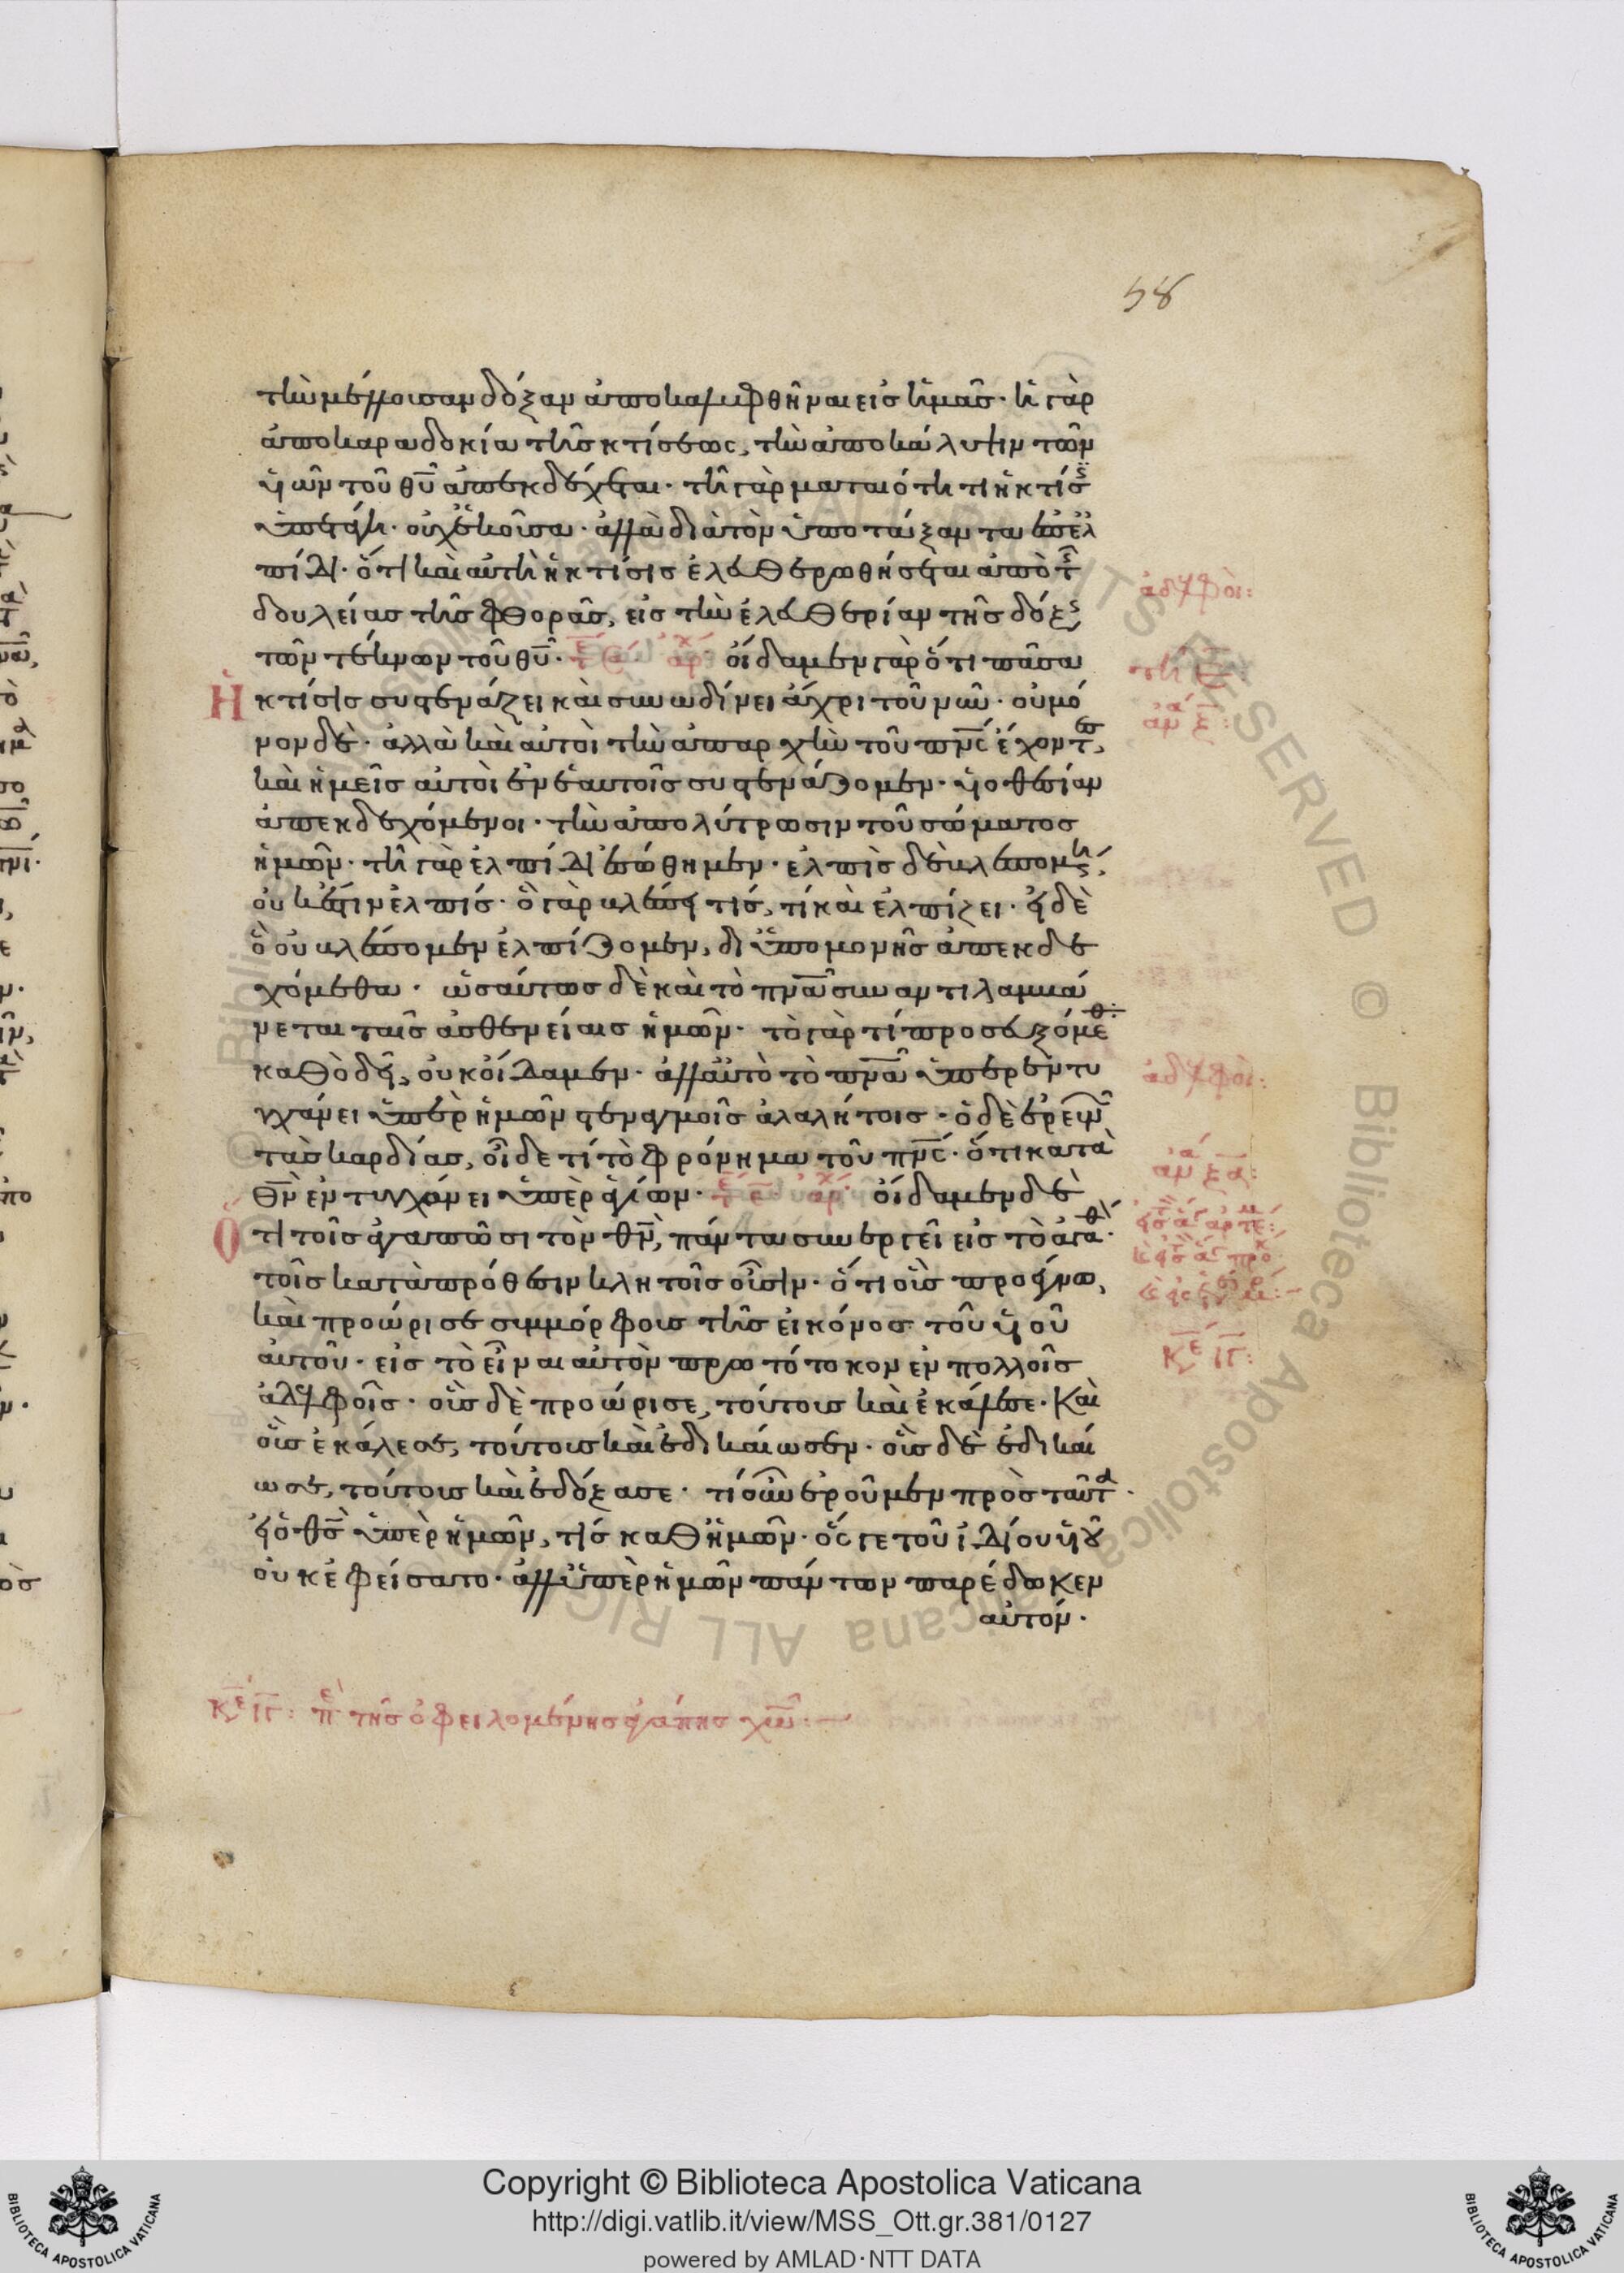 58
τὴν μέλλουσαν δόξαν ἀποκαλυφθῆναι εἰς ἡμᾶς· ἡ γὰρ
ἀποκαραδοκία τῆς κτίσεως, τὴν ἀποκάλυψιν τῶν
υἱῶν τοῦ θυ ἀπεκδέχεται· τῆ γὰρ ματαιότητι ἡ κτίσ
ὑπετάγη· οὐχ ἑκοῦσα· ἀλλὰ διὰ τὸν ὑποτάξαντα ἐπ ἐλ
πίδι· ὅτι καὶ αὐτὴ ἡ κτίσις ἐλευθερωθήσεται ἀπὸ τ
δουλείας τῆς φθορᾶς, εἰς τὴν ἐλευθερίαν τῆς δόξ
τῶν τέκνων τοῦ θυ· οἴδαμεν γὰρ ὅτι πᾶσα
ἡ κτίσις συστενάζει καὶ συνωδίνει ἄχρι τοῦ νῦν· οὐ μό
νον δὲ· ἀλλὰ καὶ αὐτοὶ τὴν ἀπαρχὴν τοῦ πνς ἔχοντ,
καὶ ἡμεῖς αὐτοὶ ἐν ἑαυτοῖς συστενάζομεν· υἱοθεσίαν
ἀπεκδεχόμενοι· τὴν ἀπολύτρωσιν τοῦ σώματος
ἡμῶν· τῆ γὰρ ἐλπίδι ἐσώθημεν· ἐλπὶς δὲ βλεπομ
οὐκ ἔστιν ἐλπίς· ὃ γὰρ βλέπει τίς, τί καὶ ἐλπίζει· εἰ δὲ
ὃ οὐ βλέπομεν ἐλπίζομεν, δι ὑπομονῆς ἀπεκδε
χόμεθα· ὡσαύτως δὲ καὶ τὸ πνα συναντιλαμβά
νεται ταῖς ἀσθενείαις ἡμῶν· τὸ γὰρ τί προσευξόμεθ
καθὸ δεῖ, οὐκ οἴδαμεν· ἀλλ αὐτὸ τὸ πνα ὑπερεντυ
γχάνει ὑπὲρ ἡμῶν στεναγμοῖς ἀλαλήτοις· ὁ δὲ ἐρευνῶν
τὰς καρδίας, οἶδε τί τὸ φρόνημα τοῦ πνς· ὅτι κατὰ
θν ἐντυγχάνει ὑπὲρ ἁγίων· οἴδαμεν δὲ
ὅτι τοῖς ἀγαπῶσι τὸν θν, πάντα συνεργεῖ εἰς τὸ ἀγαθ·
τοῖς κατὰ πρόθεσιν κλητοῖς οὖσιν· ὅτι οὓς προέγνω,
καὶ προώρισε συμμόρφους τῆς εἰκόνος τοῦ υἱοῦ
αὐτοῦ· εἰς τὸ εἶναι αὐτὸν πρωτότοκον ἐν πολλοῖς
ἀδελφοῖς· οὓς δὲ προώρισε, τούτους καὶ ἐκάλεσε· καὶ
οὓς ἐκάλεσε, τούτους καὶ ἐδικαίωσεν· οὓς δὲ ἐδικαί
ωσε, τούτους καὶ ἐδόξασε· τί οὖν ἐροῦμεν πρὸς ταῦτα·
εἰ ὁ θς ὑπὲρ ἡμῶν, τίς καθ ἡμῶν· ὅς γε τοῦ ἰδίου υἱοῦ
οὐκ ἐφείσατο· ἀλλ ὑπὲρ ἡμῶν πάντων παρέδωκεν
αὐτόν·
ἀδελφοὶ:
ἀδελφοὶ:
Κε ιγ:
Κε ιγ: πε τῆς ὀφειλομένης ἀγάπης χω:
Copyright © Biblioteca Apostolica Vaticana
http://digi.vatlib.it/view/MSS_Ott.gr.381/0127
powered by AMLAD·NTT DATA
BIBLIOTECA APOSTOLICA VATICANA
BIBLIOTECA APOSTOLICA VATICANA